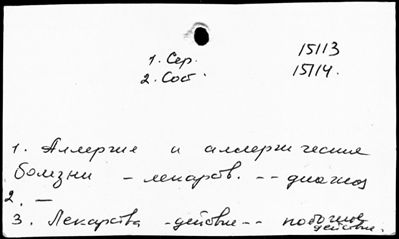 1. Сер. 15113
2. Соб. 15114.
1. Аллергия и аллергические
болезни - лекарств. -- диагноз
2. —
3. Лекарства - действие -- побочное
действие.